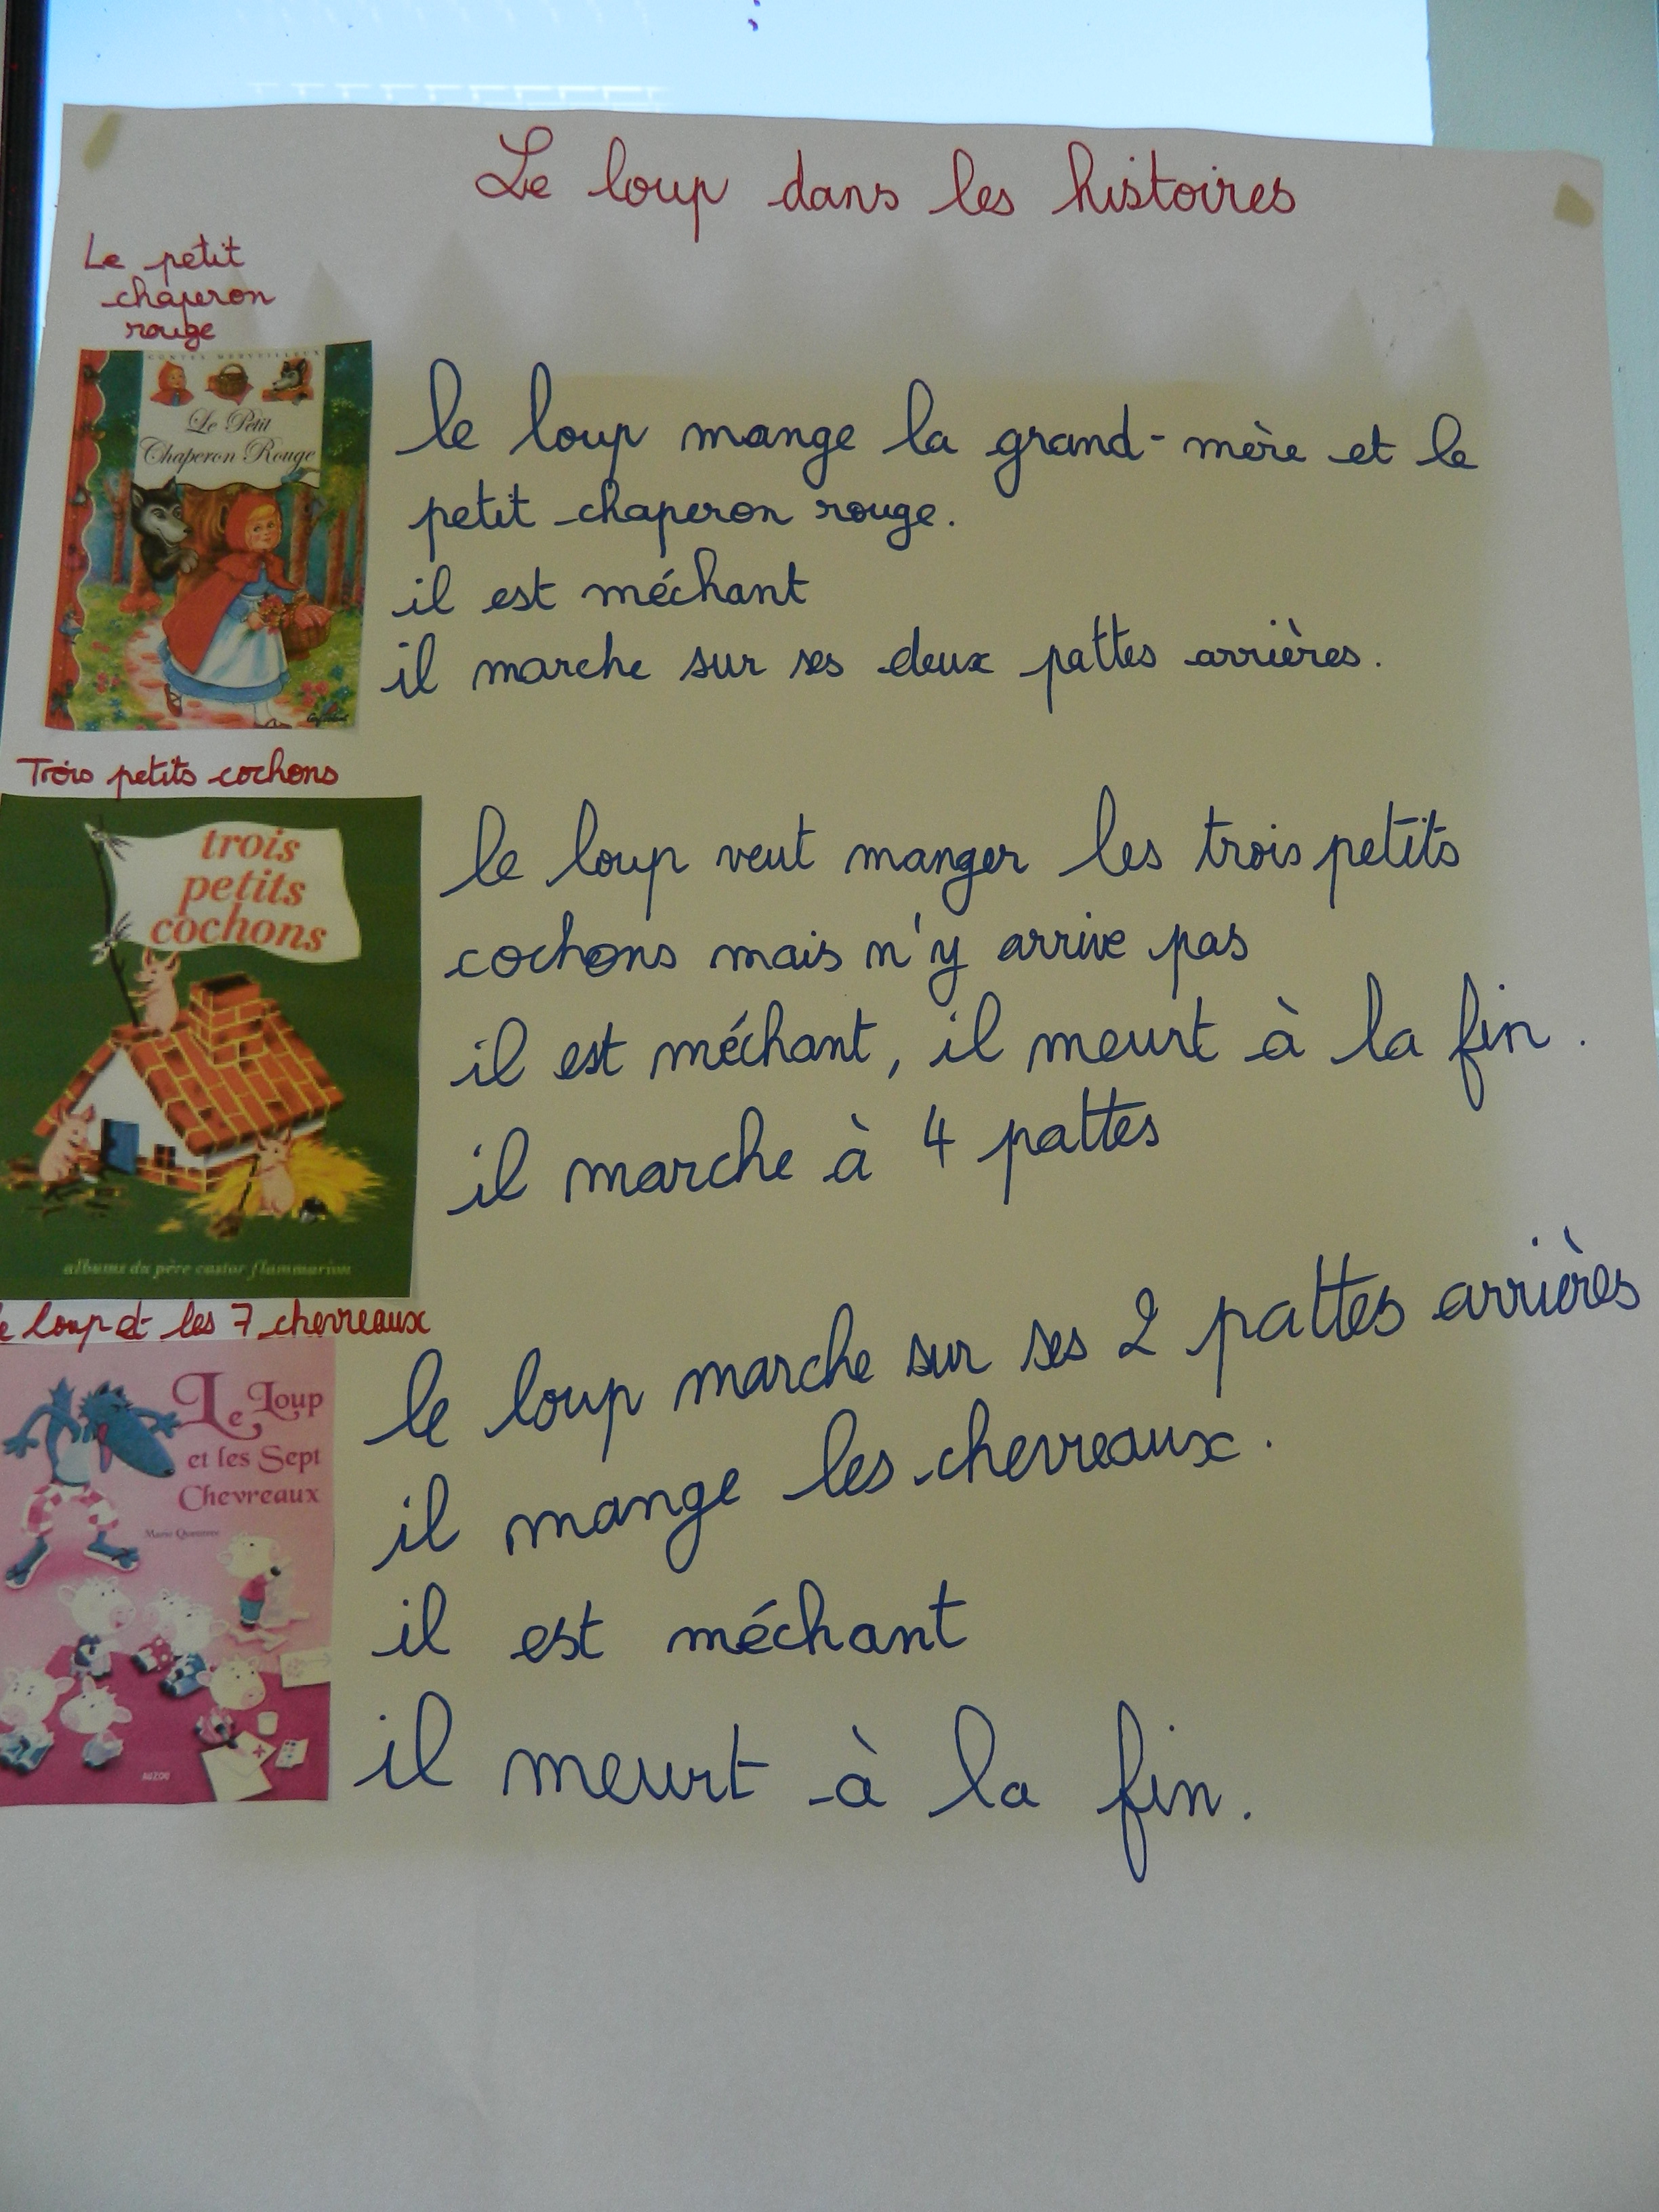 Le loup dans les histoires
Le petit
chaperon
rouge
CONTES MERVEILLEUX
Le Petit
Chaperon Rouge
le loup mange la grand-mère et le
petit chaperon rouge.
il est méchant
il marche sur ses deux pattes arrières.
Trois petits cochons
trois
petits
cochons
albums du père castor flammarion
le loup veut manger les trois petits
cochons mais n'y arrive pas
il est méchant, il meurt à la fin.
il marche à 4 pattes
le loup et les 7 chevreaux
Le Loup
et les Sept
Chevreaux
AUZOU
le loup marche sur ses 2 pattes arrières
il mange les chevreaux.
il est méchant
il meurt à la fin.